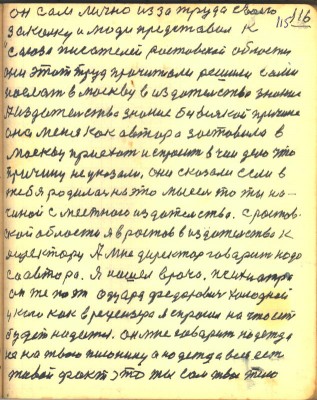 он сам лично из за труда своего
115 116
законну и люди представил к
союза писателей ростовской области
они этот труд прочитали решили сами
послат в москву в издательство знание
А издательство знание без всякой причине
она меня как автора заставила в
москву приехат и спросит в чем дело что
причину не указали, они сказали если в
тебя родилас на это мысел то ты на-
чинай с местного издательства. с ростов-
ской области я в ростов в издательство к
директору А мне директор говорит надо
соавтора. Я нашел врача, психиатра
он же поэт Эдуард федорович Холодной
у него как в рецензера я спросил на что ест
будет надеятся. он мне говорит надежда
на твою
живой факт, это ты сам твое тело